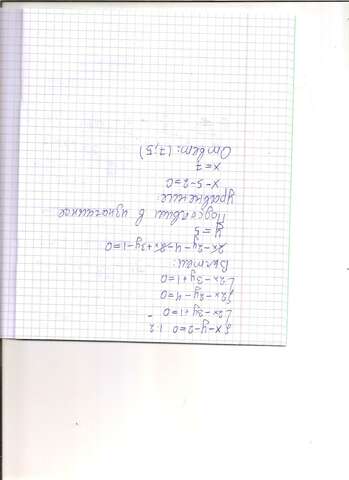 {x-y-2=0 |·2
{2x-3y+1=0 -
{2x-2y-4=0
{2x-3y+1=0
Вычтем:
2x-2y-4-2x+3y-1=0
y=5
Подставим в изначальное
уравнение
x-5-2=0
x=7
Ответ: (7;5)